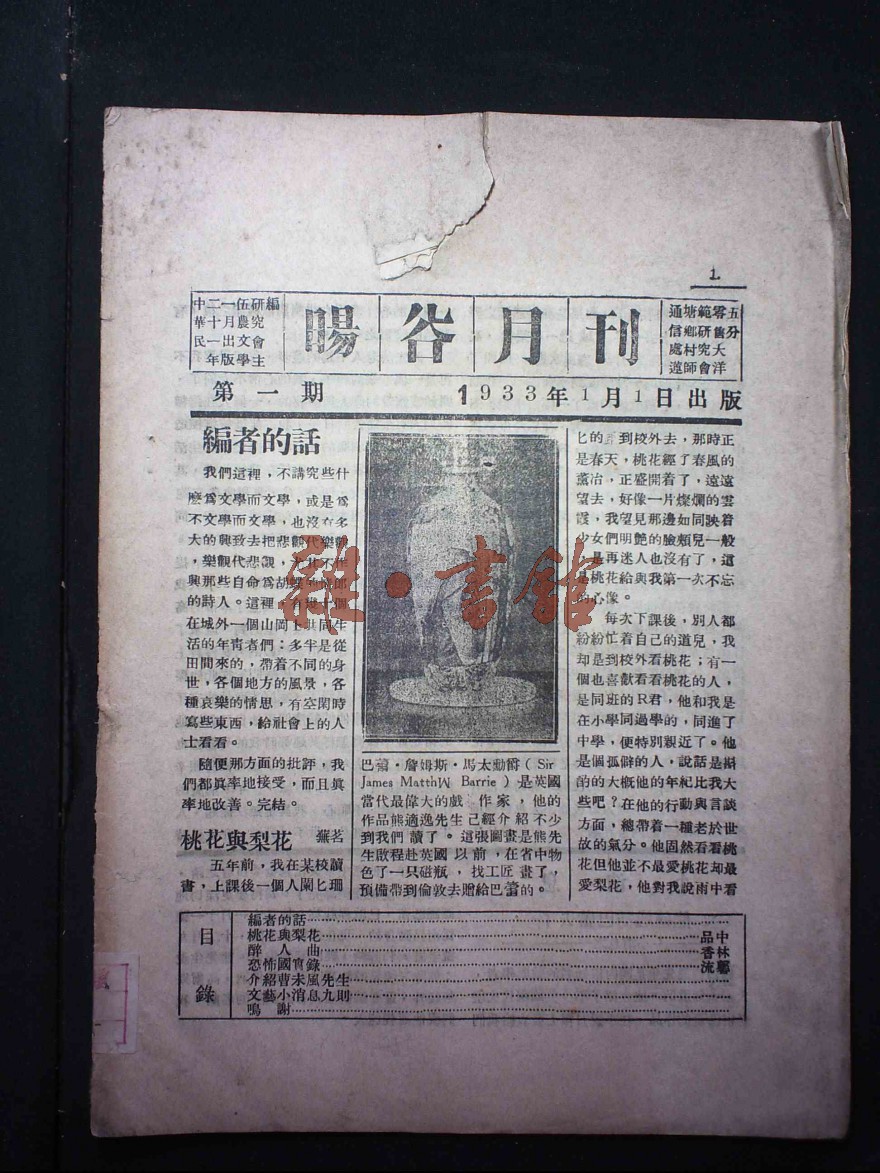 1
中華民
二十一年
一月出版
伍農文學
研究會主編
暘谷月刊
五分大洋
零售
範研究會
塘鄉村師
通信處
第一期
1933年1月1日出版
編者的話
我們這裡，不講究些什
麼爲文學而文學，或是爲
不文學而文學，也沒有多
大的興致去把悲觀代樂觀
，樂觀代悲觀，尤其不作
興那些自命爲胡蝶
的詩人。這裡，有幾十個
在城外一個山岡上共同生
活的年靑者們：多半是從
田間來的，帶着不同的身
世，各個地方的風景，各
種哀樂的情思，有空閑時
寫些東西，給社會上的人
士看看。
隨便那方面的批評，我
們都眞率地接受，而且眞
率地改善。完結。
桃花與梨花 蕪茗
五年前，我在某校讀
書，上課後一個人闌匕珊
巴蕾·詹姆斯·馬太勳爵（Sir
James MatthW Barrie）是英國
當代最偉大的戲 作家，他的
作品熊適逸先生己經介紹不少
到我們讀了。這張圖畫是熊先
生啟程赴英國以前，在省中物
色了一只磁瓶，找工匠畫了，
預備帶到倫敦去贈給巴蕾的。
匕的 到校外去，那時正
是春天，桃花經了春風的
薰冶，正盛開着了，遠遠
望去，好像一片燦爛的雲
霞，我望見那邊如同映着
少女們明艷的臉頰兒一般
，是再迷人也沒有了，這
是桃花給與我第一次不忘
的心像。
每次下課後，別人都
紛紛忙着自己的道兒，我
却是到校外看桃花；有一
個也喜歡看看桃花的人，
是同班的R君，他和我是
在小學同過學的，同進了
中學，便特別親近了。他
是個孤僻的人，說話是斟
酌的大概他的年紀比我大
些吧？在他的行動與言談
方面，總帶着一種老於世
故的氣分。他固然看看桃
花但他並不最愛桃花却最
愛梨花，他對我說雨中看
目錄
編者的話
桃花與梨花 品中
醉人曲 香林
恐怖國實錄 流鄹
介紹曹未風先生
文藝小消息九則
鳴謝
雜·書館